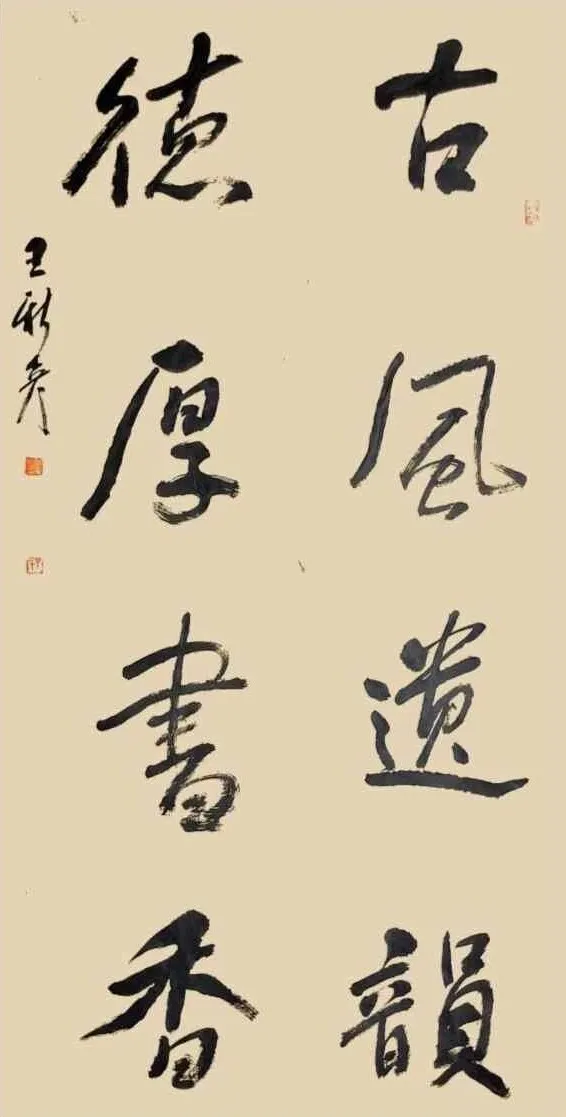 古風遺韻
德厚書香
王